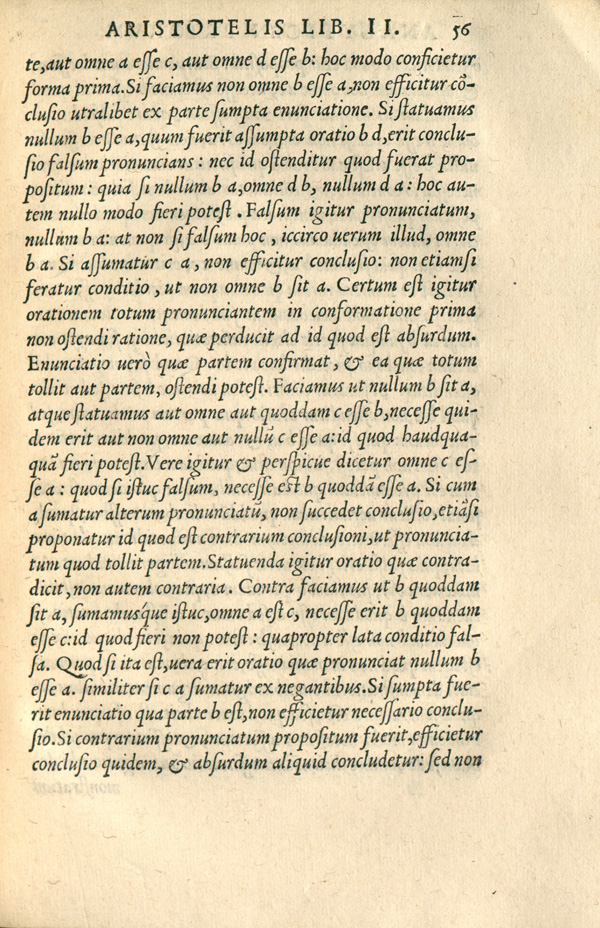 ARISTOTELIS LIB. II. 56
te,aut omne a eſſe c, aut omne d eſſe b: hoc modo conficietur
forma prima.Si faciamus non omne b eſſe a,non efficitur cō-
cluſio utralibet ex parte ſumpta enunciatione. Si ſtatuamus
nullum b eſſe a,quum fuerit aſſumpta oratio b d,erit conclu-
ſio falſum pronuncians : nec id oſtenditur quod fuerat pro-
poſitum : quia ſi nullum b a,omne d b, nullum d a : hoc au-
tem nullo modo fieri poteſt . Falſum igitur pronunciatum,
nullum b a: at non ſi falſum hoc , iccirco uerum illud, omne
b a. Si aſſumatur c a , non efficitur concluſio: non etiamſi
feratur conditio , ut non omne b ſit a. Certum eſt igitur
orationem totum pronunciantem in conformatione prima
non oſtendi ratione, quæ perducit ad id quod eſt abſurdum.
Enunciatio uerò quæ partem confirmat, & ea quæ totum
tollit aut partem, oſtendi poteſt. Faciamus ut nullum b ſit a,
atque ſtatuamus aut omne aut quoddam c eſſe b,neceſſe qui-
dem erit aut non omne aut nullū c eſſe a:id quod haudqua-
quā fieri poteſt.Vere igitur & perſpicue dicetur omne c eſ-
ſe a : quod ſi iſtuc falſum, neceſſe eſt b quoddā eſſe a. Si cum
a ſumatur alterum pronunciatū, non ſuccedet concluſio,etiāſi
proponatur id quod eſt contrarium concluſioni,ut pronuncia-
tum quod tollit partem.Statuenda igitur oratio quæ contra-
dicit,non autem contraria . Contra faciamus ut b quoddam
ſit a, ſumamus'que iſtuc,omne a eſt c, neceſſe erit b quoddam
eſſe c:id quod fieri non poteſt : quapropter lata conditio fal-
ſa. Quod ſi ita eſt,uera erit oratio quæ pronunciat nullum b
eſſe a. ſimiliter ſi c a ſumatur ex negantibus.Si ſumpta fue-
rit enunciatio qua parte b eſt,non efficietur neceſſario conclu-
ſio.Si contrarium pronunciatum propoſitum fuerit,efficietur
concluſio quidem, & abſurdum aliquid concludetur: ſed non